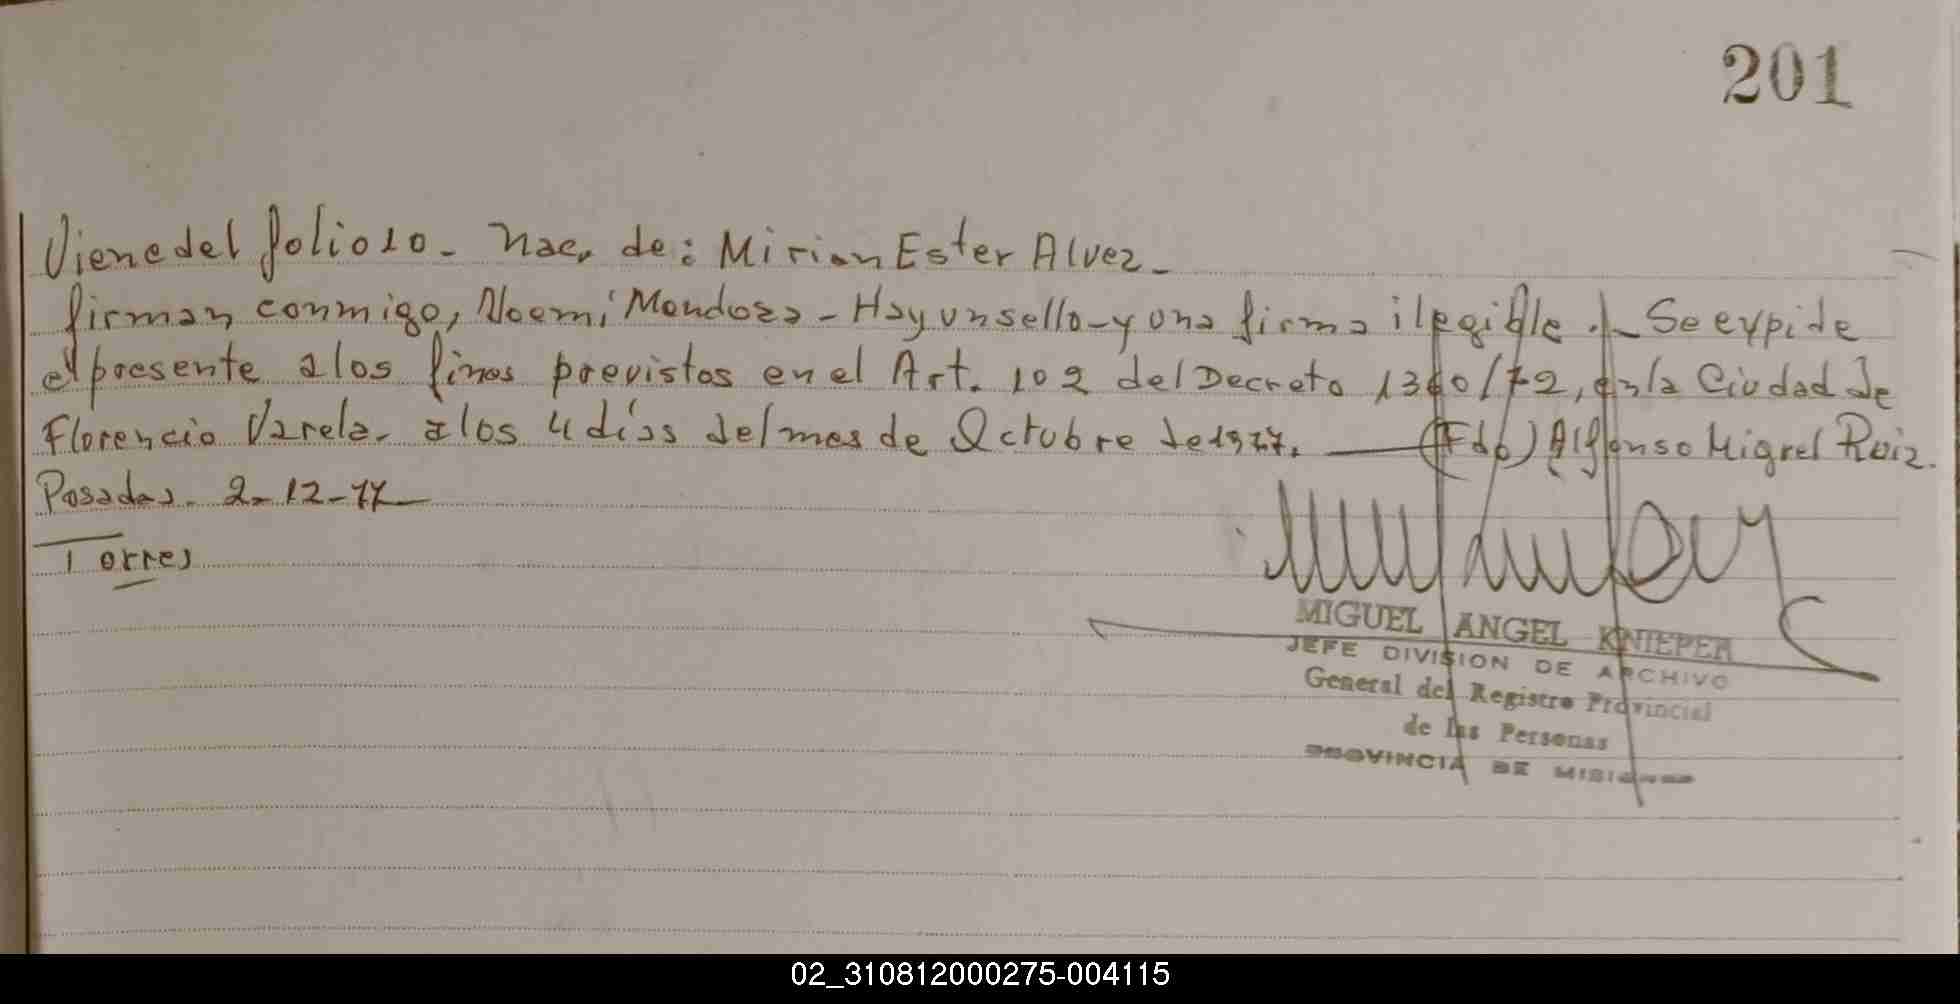 201
Viene del folio 10. Nac. de: Mirian Ester Alvez.
firman conmigo, Noemi Mendoza - Hay un sello - y una firma ilegible. Se expide
el presente a los fines previstos en el Art. 102 del Decreto 1360/72, en la Ciudad de
Florencio Varela, a los 4 días del mes de Octubre de 1977. (Fdo) Alfonso Miguel Ruiz.
Posadas. 2-12-77
Torres
MIGUEL ANGEL KNIEPER
JEFE DIVISION DE ARCHIVO
General del Registro Provincial
de las Personas
PROVINCIA DE MISIONES
02_310812000275-004115